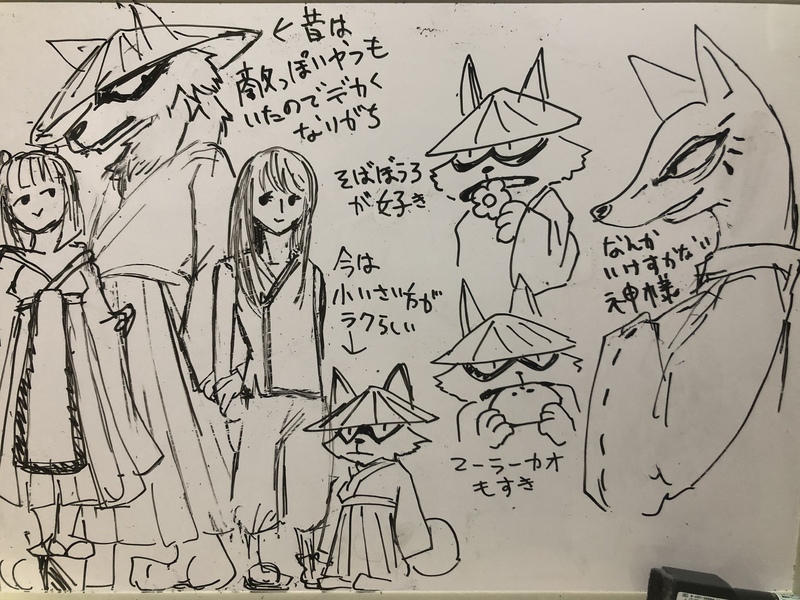 ←昔は
敵っぽいやつも
いたのでデカく
なりがち
そばぼうろ
が好き
今は
小いさい方が
ラクらしい
↓
マーラーカオ
もすき
なんか
いけすかない
神様